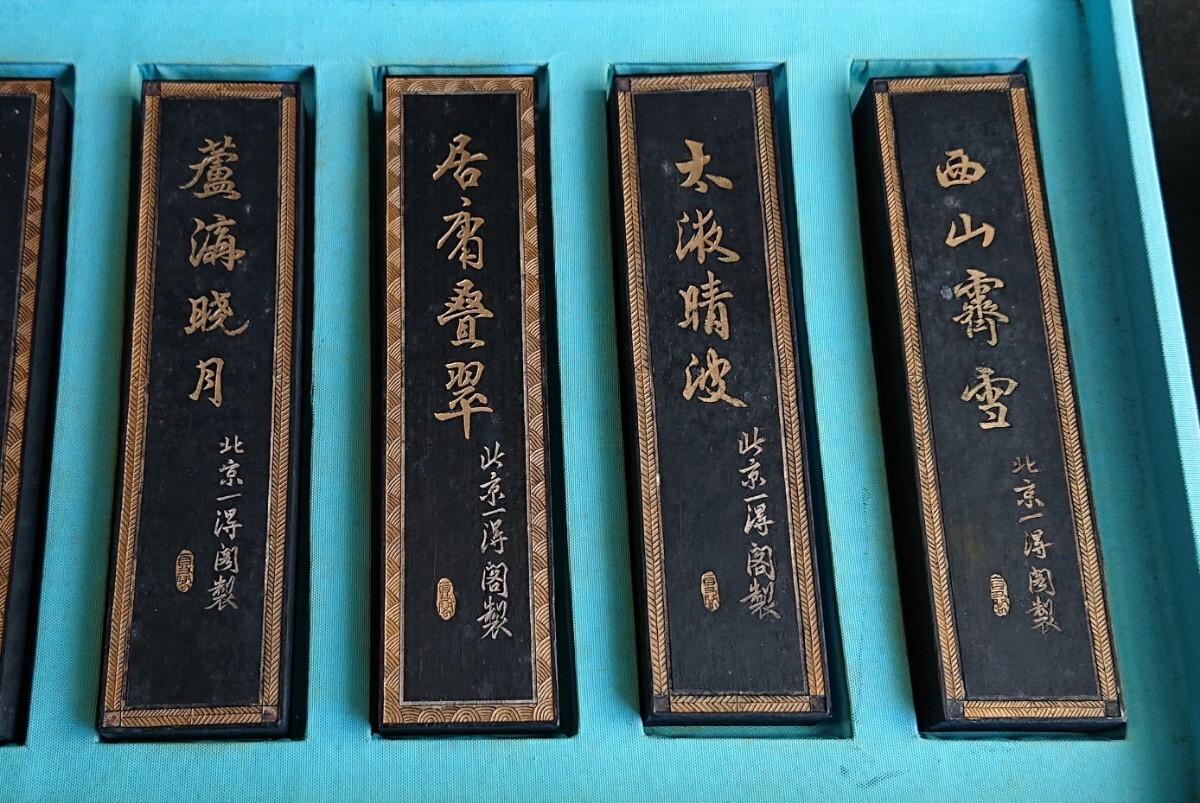 蘆溝晓月
北京一得閣製
居庸叠翠
北京一得閣製
太液晴波
北京一得閣製
西山霽雪
北京一得閣製